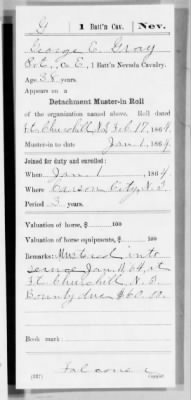 G 1 Batt'n Cav. Nev.
George C. Gray
Pvt., Co E, 1 Batt'n Nevada Cavalry.
Age 38 years.
Appears on a
Detachment Muster-in Roll
of the organization named above. Roll dated
Ft. Churchill N.T. Feb 17, 1864.
Muster-in to date Jan 1, 1864
Joined for duty and enrolled:
When Jan 1 1864
Where Carson City, N.T.
Period 3 years.
Valuation of horse, $ 100
Valuation of horse equipments, $ 100
Remarks: Mustered into
service Jan 11 64, at
Ft. Churchill N.T.
Bounty due $60.00.
Book mark
Falconer
(337) Copyist.